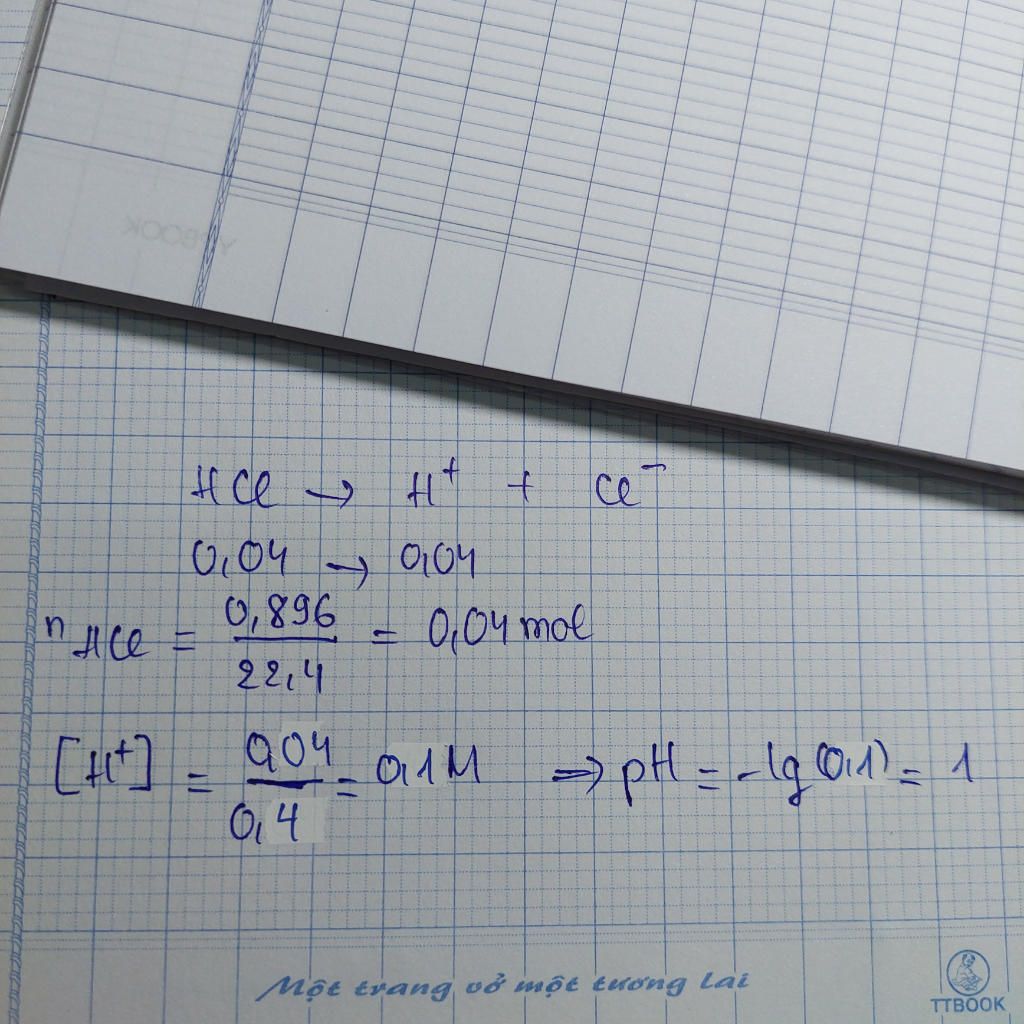 YPBOOK
HCl → H⁺ + Cl⁻
0,04 → 0,04
nHCl = 0,896/22,4 = 0,04 mol
[H⁺] = 0,04/0,4 = 0,1M ⇒ pH = -lg(0,1) = 1
Một trang vở một tương lai
TTBOOK